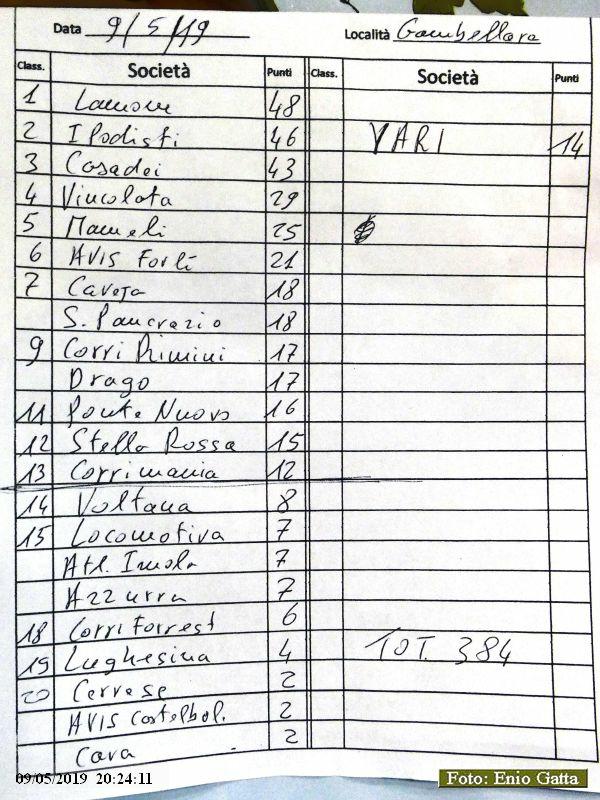 Data 9/5/19 Località Gambellara
Class. Società Punti Class. Società Punti
1 Lamone 48
2 I Podisti 46 VARI 14
3 Casadei 43
4 Vincolata 29
5 Mameli 25
6 AVIS Forlì 21
7 Caveja 18
S. Pancrazio 18
9 Corri Rimini 17
Drago 17
11 Ponte Nuovo 16
12 Stella Rossa 15
13 Corrimania 12
14 Voltana 8
15 Locomotiva 7
Atl. Imola 7
Azzurra 7
18 Corri Forrest 6
19 Lughesina 4 TOT. 384
20 Cervese 2
AVIS Castelbol. 2
Cava 2
09/05/2019 20:24:11
Foto: Enio Gatta